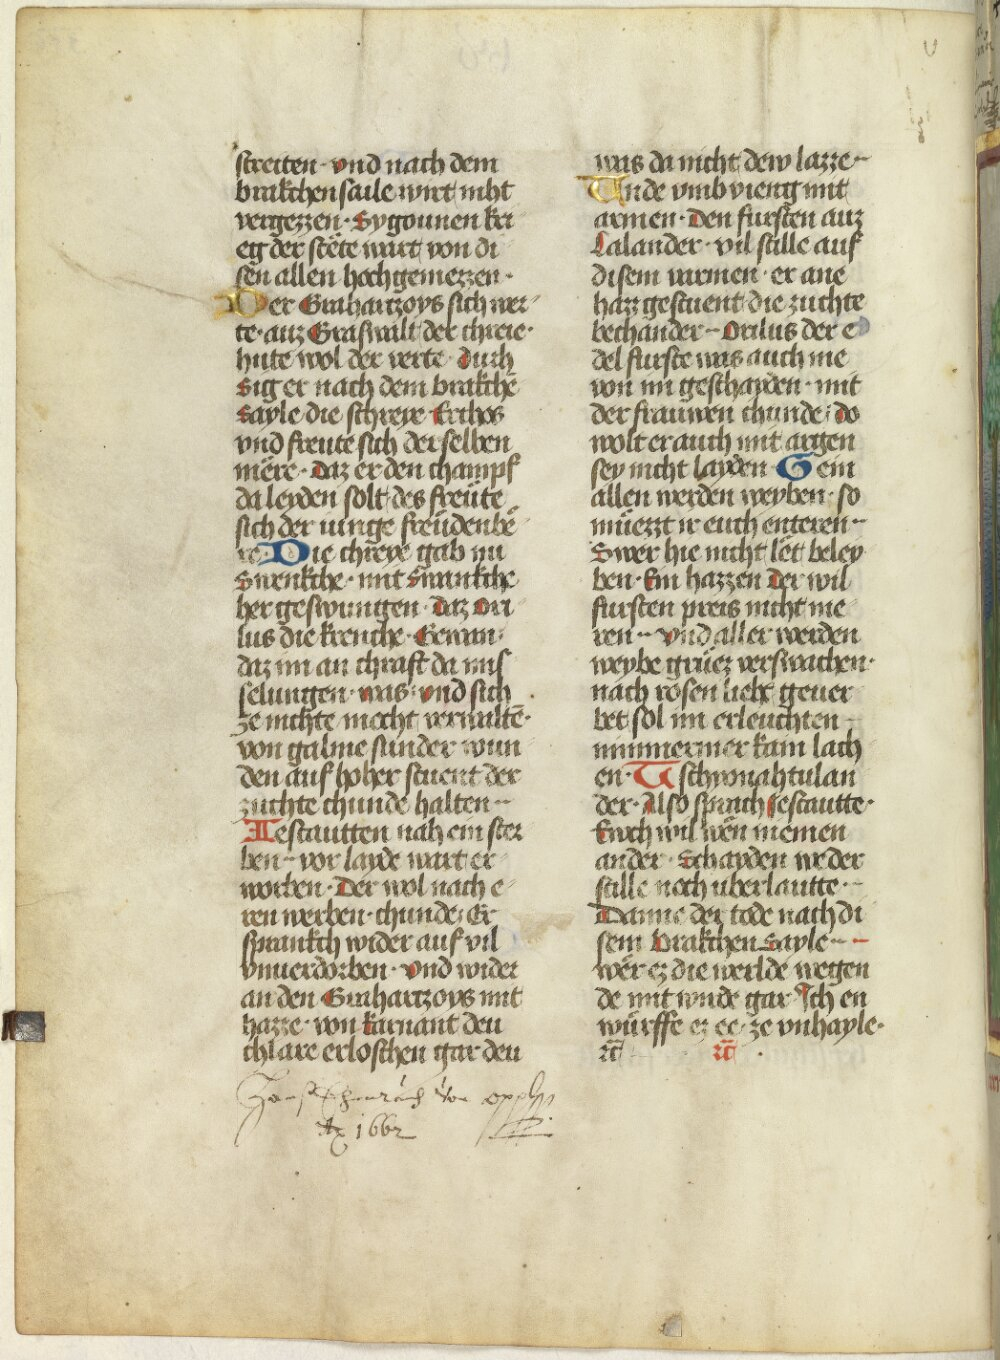 streiten · vnd nach dem
brakchensaile wirt niht
vergezzen · Sygounen kri
eg der stête wart von di
sen allen hoch gemezzen ·
Der Grahartzoys sich wer
te · auz Graswalt der chreie ·
hute wol der verte · Durch
Sig er nach dem brakchē
Sayle die schreye Erthos
vnd freute sich der selben
mêre · daz er den champf
da leyden solt des freüte
sich der iunge freüdenbê
re · Die chreye gab im
Swenkche · mit Swankche
her geswungen · daz Ori
lus die krenche · Gewan
daz im an chraft da mis
selungen · was · vnd sich
ze nichte mocht verwaltē ·
von galme sunder wun
den auf hoher stuent der
zuchte chunde halten
Iestautten nah ein ster
ben vor layde wart er
worben · Der wol nach e
ren werben · chunde Er
sprankch wider auf vil
vnuerdorben · vnd wider
an den Grahartzoys mit
hazze · von karnant den
chlare erloschen gar den
was da nicht dew lazze
Vnde vmb vieng mit
armen · Den fursten auz
Lalander · vil stille auf
disem warmen · er ane
hazz gestuent die zuchte
bechander Orilus der e
del furste was auch nie
von im geschayden · mit
der frauwen chunde · do
wolt er auch mit argen
sey nicht layden · Gein
allen werden weyben · so
müezzt ir euch enteren
Swer hie nicht lêt beley
ben · Ein hazzen Der wil
fursten preis nicht me
ren · vnd aller werden
weybe grüez verswachen ·
nach rosen lieht geuer
bet sol im erleuchten
nimmermer kain lach
en · Tschyonahtulan
der · Also sprach Iestautte ·
Ewch wil wên niemen
ander · Schayden weder
stille noch uberlautte
Danne der tode nach di
sem Brakchen Sayle
wêr ez die werlde wegen
de mit winde gar Ich en
würffe ez ee · ze vnhayle ·
rc̄ rc̄ ·
1662